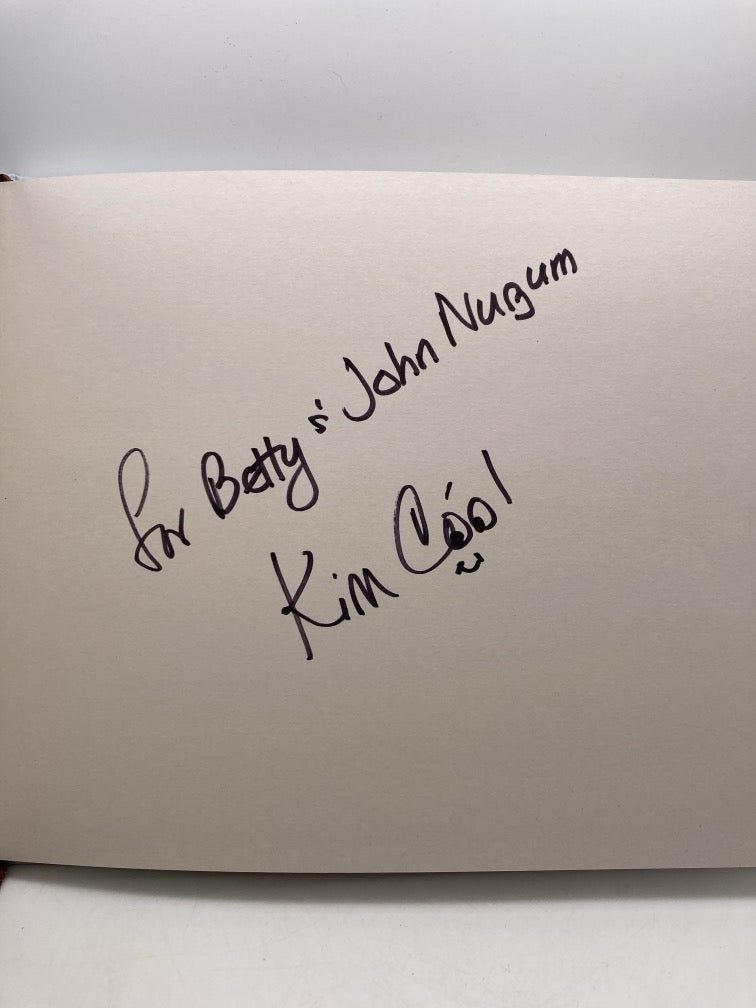 for Betty & John Nuzum
Kim Cool